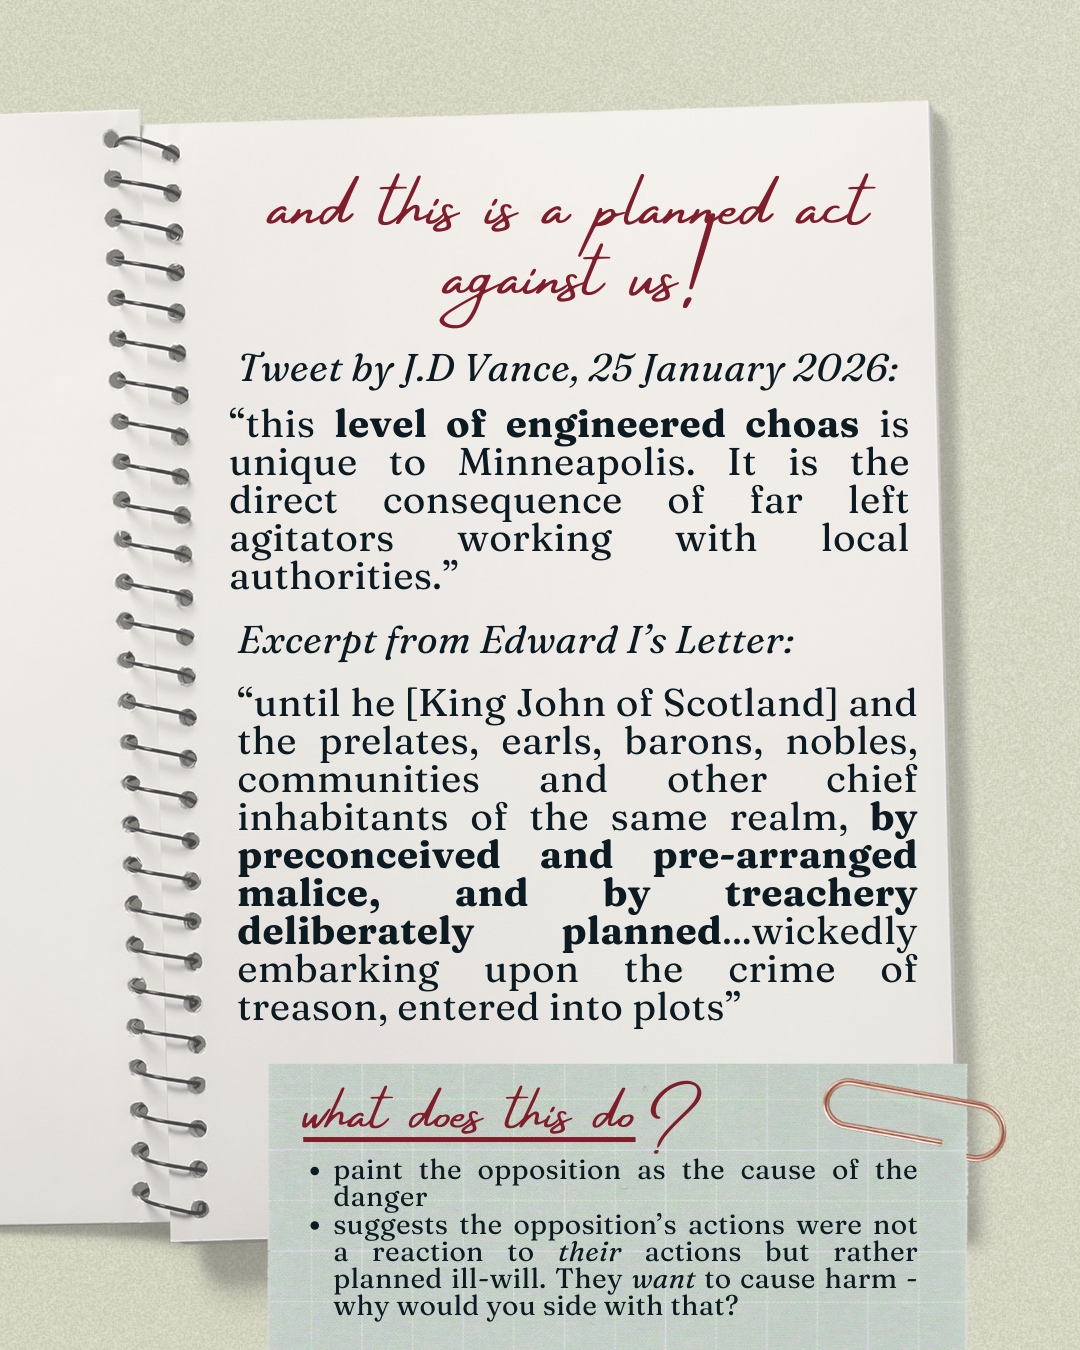 and this is a planned act
against us!
Tweet by J.D Vance, 25 January 2026:
“this level of engineered choas is
unique to Minneapolis. It is the
direct consequence of far left
agitators working with local
authorities.”
Excerpt from Edward I’s Letter:
“until he [King John of Scotland] and
the prelates, earls, barons, nobles,
communities and other chief
inhabitants of the same realm, by
preconceived and pre-arranged
malice, and by treachery
deliberately planned...wickedly
embarking upon the crime of
treason, entered into plots”
what does this do?
• paint the opposition as the cause of the
danger
• suggests the opposition’s actions were not
a reaction to their actions but rather
planned ill-will. They want to cause harm -
why would you side with that?